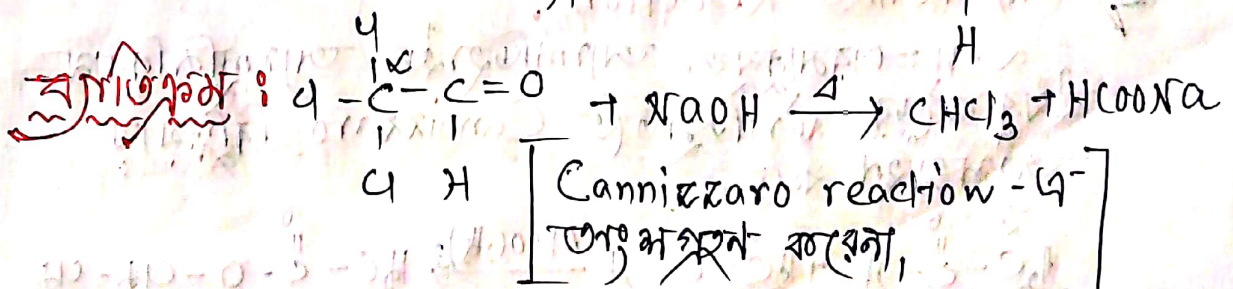 Cl H
ব্যতিক্রম : Cl - C∝ - C = O + NaOH Δ→ CHCl3 + HCOONa
Cl H
[Cannizzaro reaction - এ
অংশগ্রহন করেনা,]